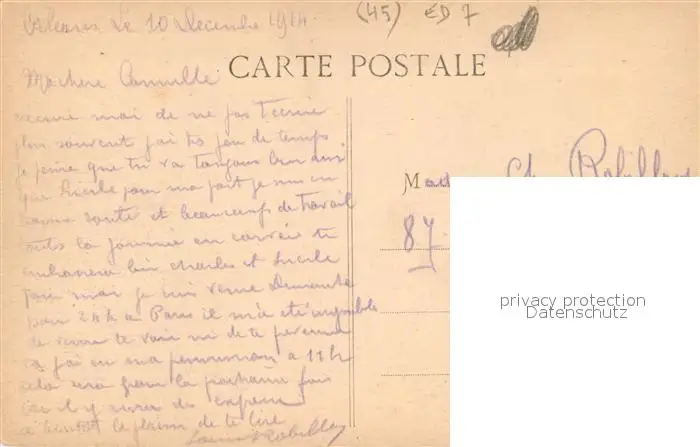 Orléans Le 10 Décembre 1914
(45) ED 7
Ma chère Camille
CARTE POSTALE
excuse moi de ne pas t'écrire
plus souvent j'ai très peu de temps
je pense que tu va toujours bien ainsi
que Lucile pour ma part je suis en
bonne santé et beaucoup de travail
toute la journée en corvée tu
embrassera bien Charles et Lucile
pour moi je suis venu Dimanche
pour 24 h a Paris il m'a été impossible
de venir te voir ni de te prévenir
j'ai eu ma permission a 11 h
cela sera pour la prochaine fois
car il y aura des
a bientôt le plaisir de te lire
Louis Robillon
M Ch. Robillon
87
privacy protection
Datenschutz